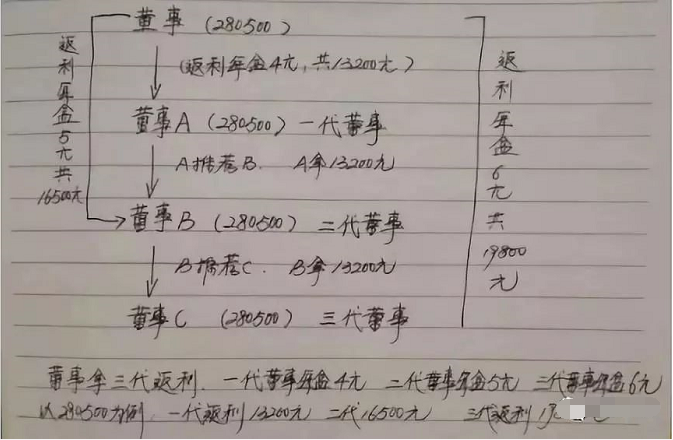 董事 (280500)
(返利每盒4元,共13200元)
董事A (280500) 一代董事
A推荐B. A拿13200元
董事B (280500) 二代董事
B推荐C. B拿13200元
董事C (280500) 三代董事
返利每盒5元共16500元
返利每盒6元共19800元
董事拿三代返利. 一代董事每盒4元 二代董事每盒5元 三代董事每盒6元
以280500为例, 一代返利13200元 二代16500元 三代返利